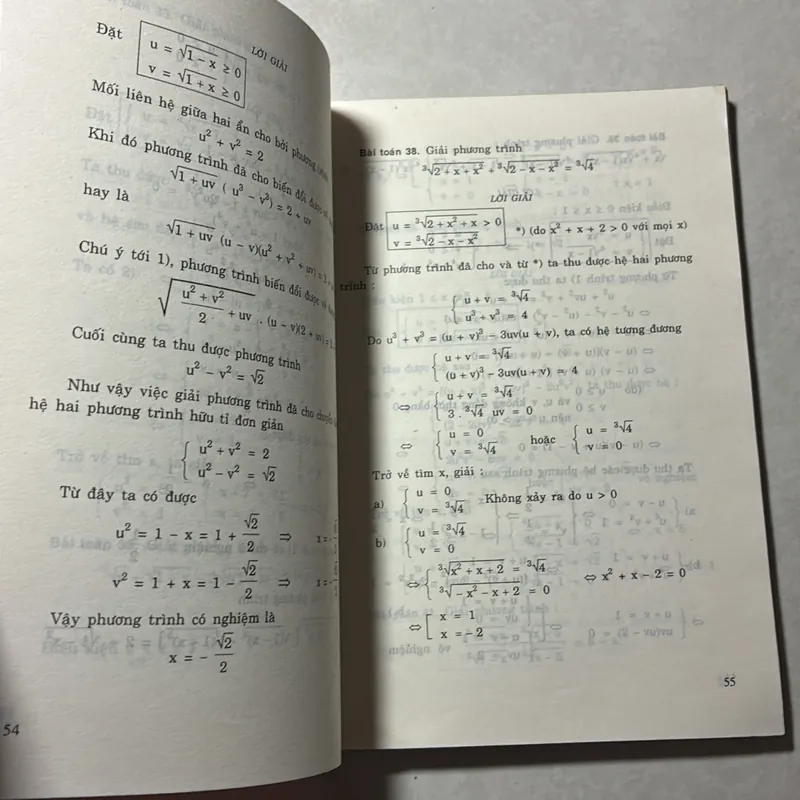 LỜI GIẢI
Đặt
u = √1 − x ≥ 0
v = √1 + x ≥ 0
Mối liên hệ giữa hai ẩn cho bởi phương
u² + v² = 2
Khi đó phương trình đã cho biến đổi được
√1 + uv ( u³ − v³) = 2 + uv
hay là
√1 + uv (u − v)(u² + v² + uv) =
Chú ý tới 1), phương trình biến đổi được
√(u² + v²)/2 + uv . (u − v)(2 + uv) =
Cuối cùng ta thu được phương trình
u² − v² = √2
Như vậy việc giải phương trình đã cho
hệ hai phương trình hữu tỉ đơn giản
u² + v² = 2
u² − v² = √2
Từ đây ta có được
u² = 1 − x = 1 + √2/2 ⇒ x = −
v² = 1 + x = 1 − √2/2 ⇒ x = −
Vậy phương trình có nghiệm là
x = − √2/2
54
Bài toán 38. Giải phương trình
³√2 + x + x² + ³√2 − x − x² = ³√4
LỜI GIẢI
Đặt u = ³√2 + x² + x > 0 *) (do x² + x + 2 > 0 với mọi x)
v = ³√2 − x − x²
Từ phương trình đã cho và từ *) ta thu được hệ hai phương
trình :
u + v = ³√4
u³ + v³ = 4
Do u³ + v³ = (u + v)³ − 3uv(u + v), ta có hệ tương đương
u + v = ³√4
(u + v)³ − 3uv(u + v) = 4
⇔ u + v = ³√4
3 . ³√4 uv = 0
⇔ u = 0 hoặc u = ³√4
v = ³√4 v = 0
Trở về tìm x, giải :
a) u = 0 Không xảy ra do u > 0
v = ³√4
b) u = ³√4
v = 0
⇔ ³√x² + x + 2 = ³√4 ⇔ x² + x − 2 = 0
³√− x² − x + 2 = 0
⇔ x = 1
x = − 2
55